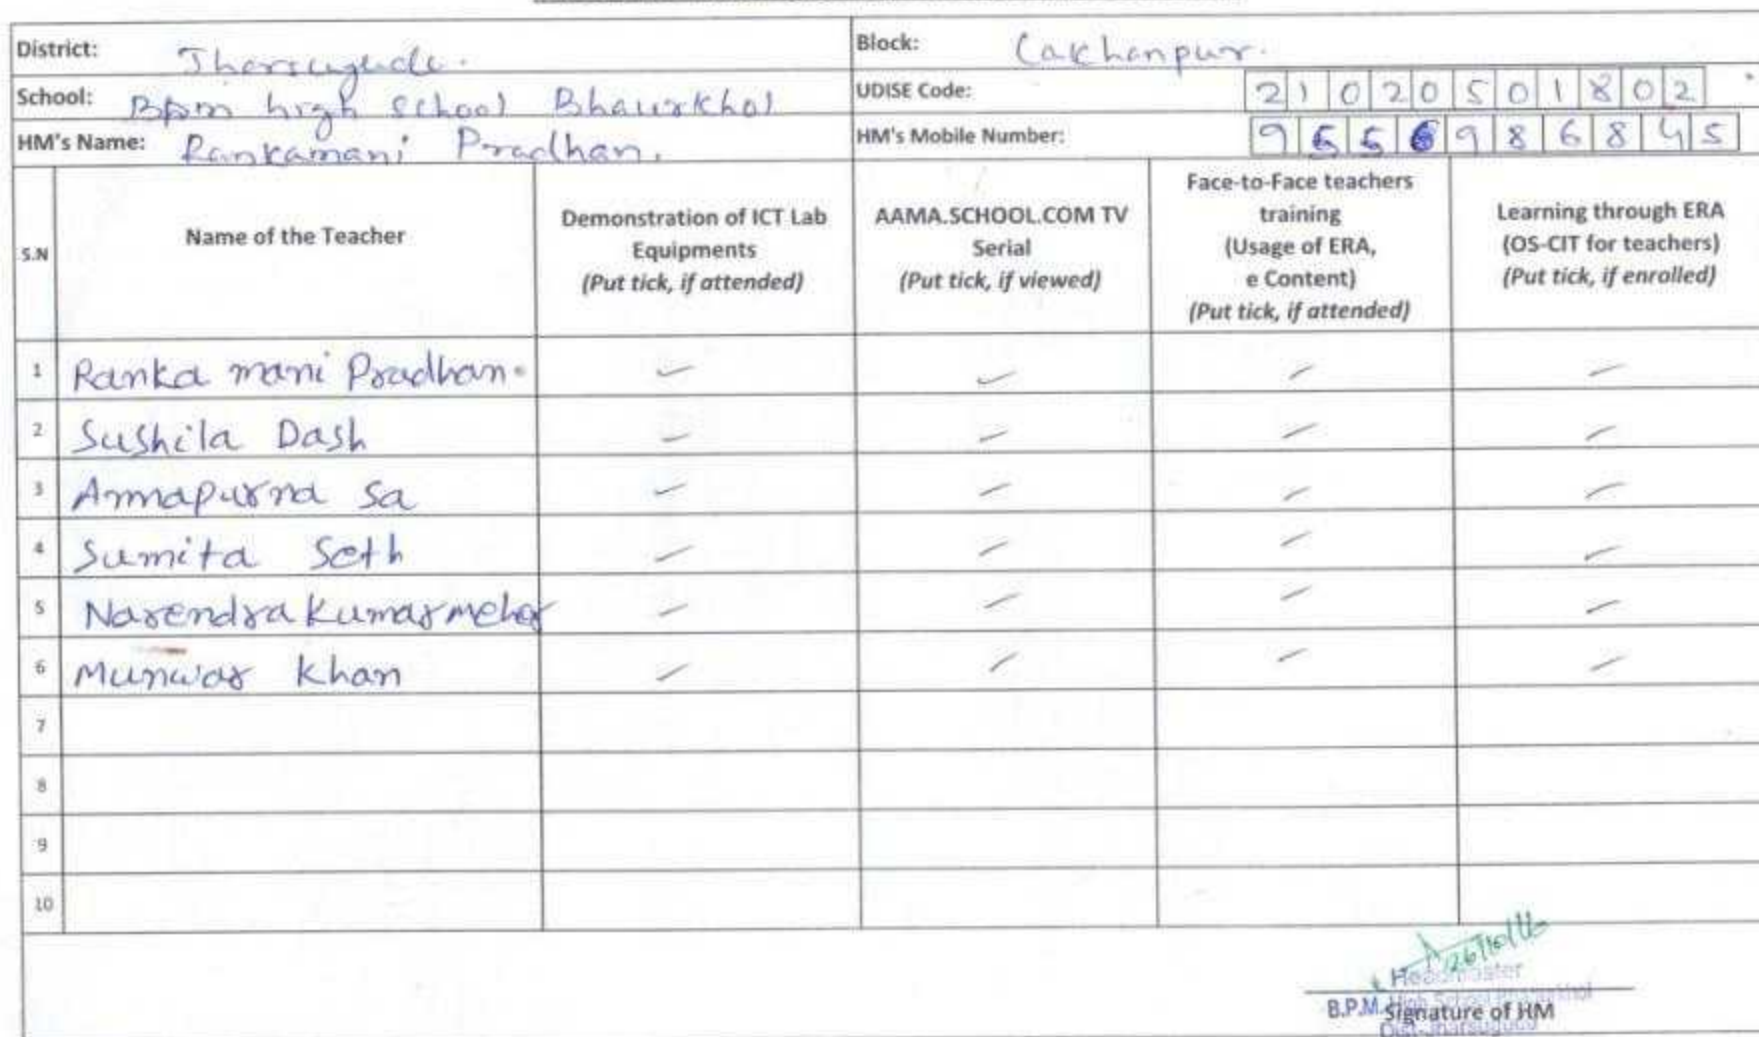 District: Jharsuguda. Block: Lakhanpur.
School: Bpm high school Bhaurkhol UDISE Code: 21020501802
HM's Name: Rankamani Pradhan. HM's Mobile Number: 9556986845
S.N Name of the Teacher Demonstration of ICT Lab Equipments (Put tick, if attended) AAMA.SCHOOL.COM TV Serial (Put tick, if viewed) Face-to-Face teachers training (Usage of ERA, e Content) (Put tick, if attended) Learning through ERA (OS-CIT for teachers) (Put tick, if enrolled)
1 Ranka mani Pradhan. ✓ ✓ ✓ ✓
2 Sushila Dash ✓ ✓ ✓ ✓
3 Annapurna Sa ✓ ✓ ✓ ✓
4 Sumita Seth ✓ ✓ ✓ ✓
5 Narendra Kumar meher ✓ ✓ ✓ ✓
6 Munwar Khan ✓ ✓ ✓ ✓
7
8
9
10
26/10/16
Headmaster
B.P.M. High School
Signature of HM
Dist-Jharsuguda